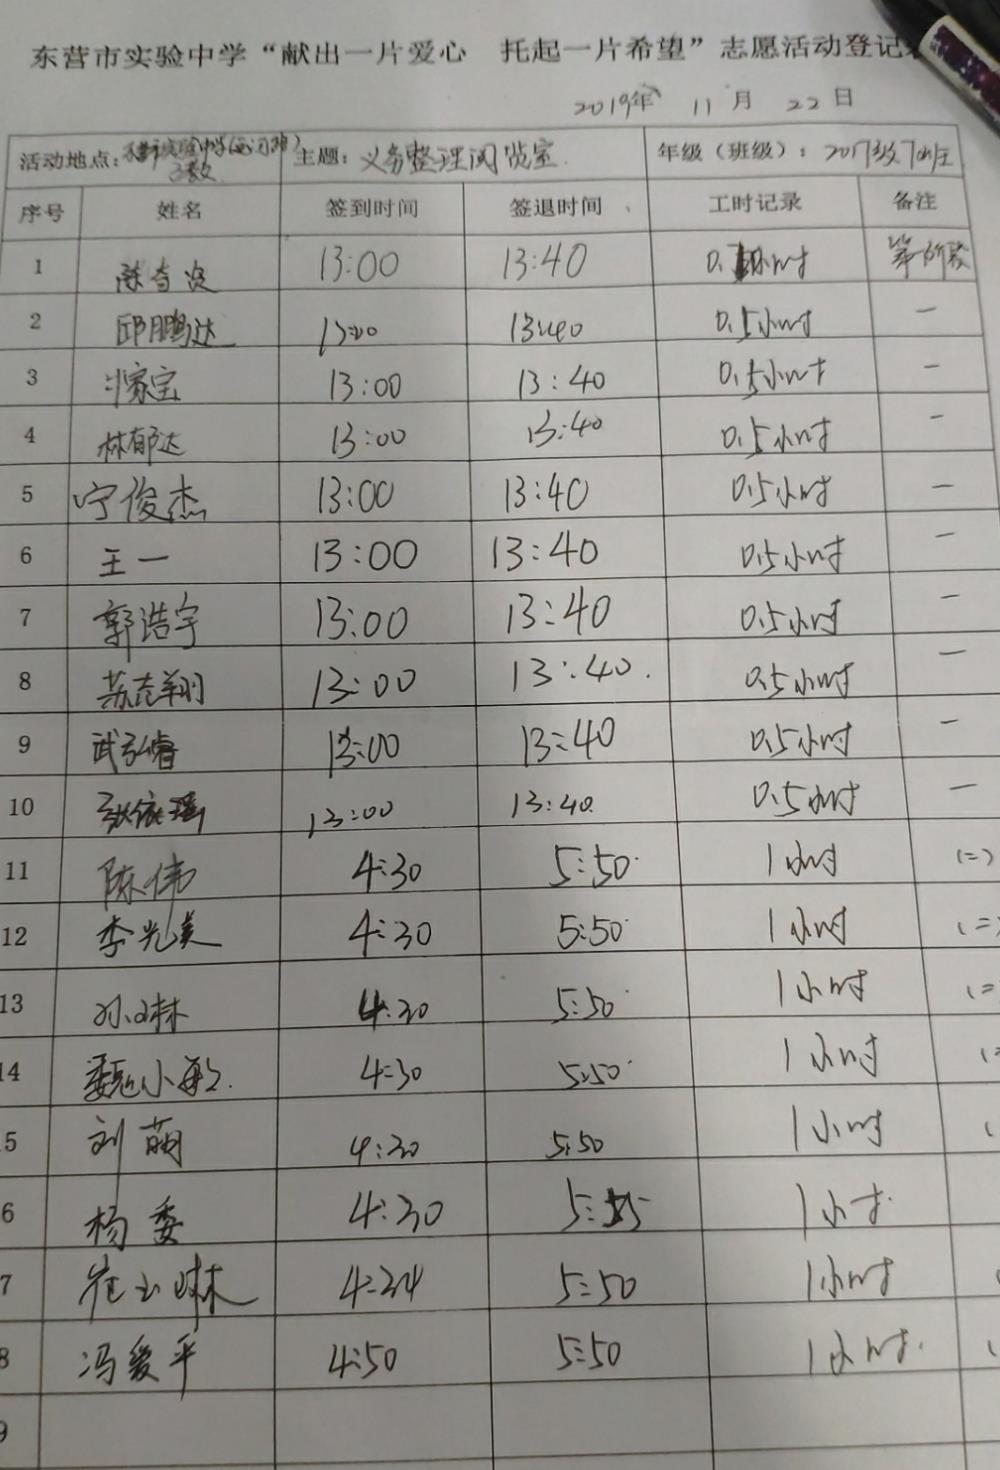 东营市实验中学“献出一片爱心 托起一片希望”志愿活动登记
2019年 11月 22日
活动地点: 主题: 义务整理阅览室 年级（班级）: 2017级7班
序号 姓名 签到时间 签退时间 工时记录 备注
1 13:00 13:40 0. 小时 第一阶段
2 邱鹏达 13:00 13:40 0.5小时 一
3 家宝 13:00 13:40 0.5小时 一
4 林郁达 13:00 13:40 0.5小时 一
5 宁俊杰 13:00 13:40 0.5小时 一
6 王一 13:00 13:40 0.5小时 一
7 郭浩宇 13:00 13:40 0.5小时 一
8 苏志翔 13:00 13:40. 0.5小时 一
9 武弘睿 13:00 13:40 0.5小时 一
10 张依瑶 13:00 13:40. 0.5小时 一
11 陈伟 4:30 5:50 1小时 (二)
12 李光美 4:30 5:50 1小时 (二)
13 孙琳 4:30 5:50 1小时 (二
14 魏小敏. 4:30 5:50 1小时 (二
5 刘萌 4:30 5:50 1小时 (
6 杨委 4:30 5: 1小时
7 崔玉琳 4:34 5:50 1小时
8 冯爱平 4:50 5:50 1小时. (
9